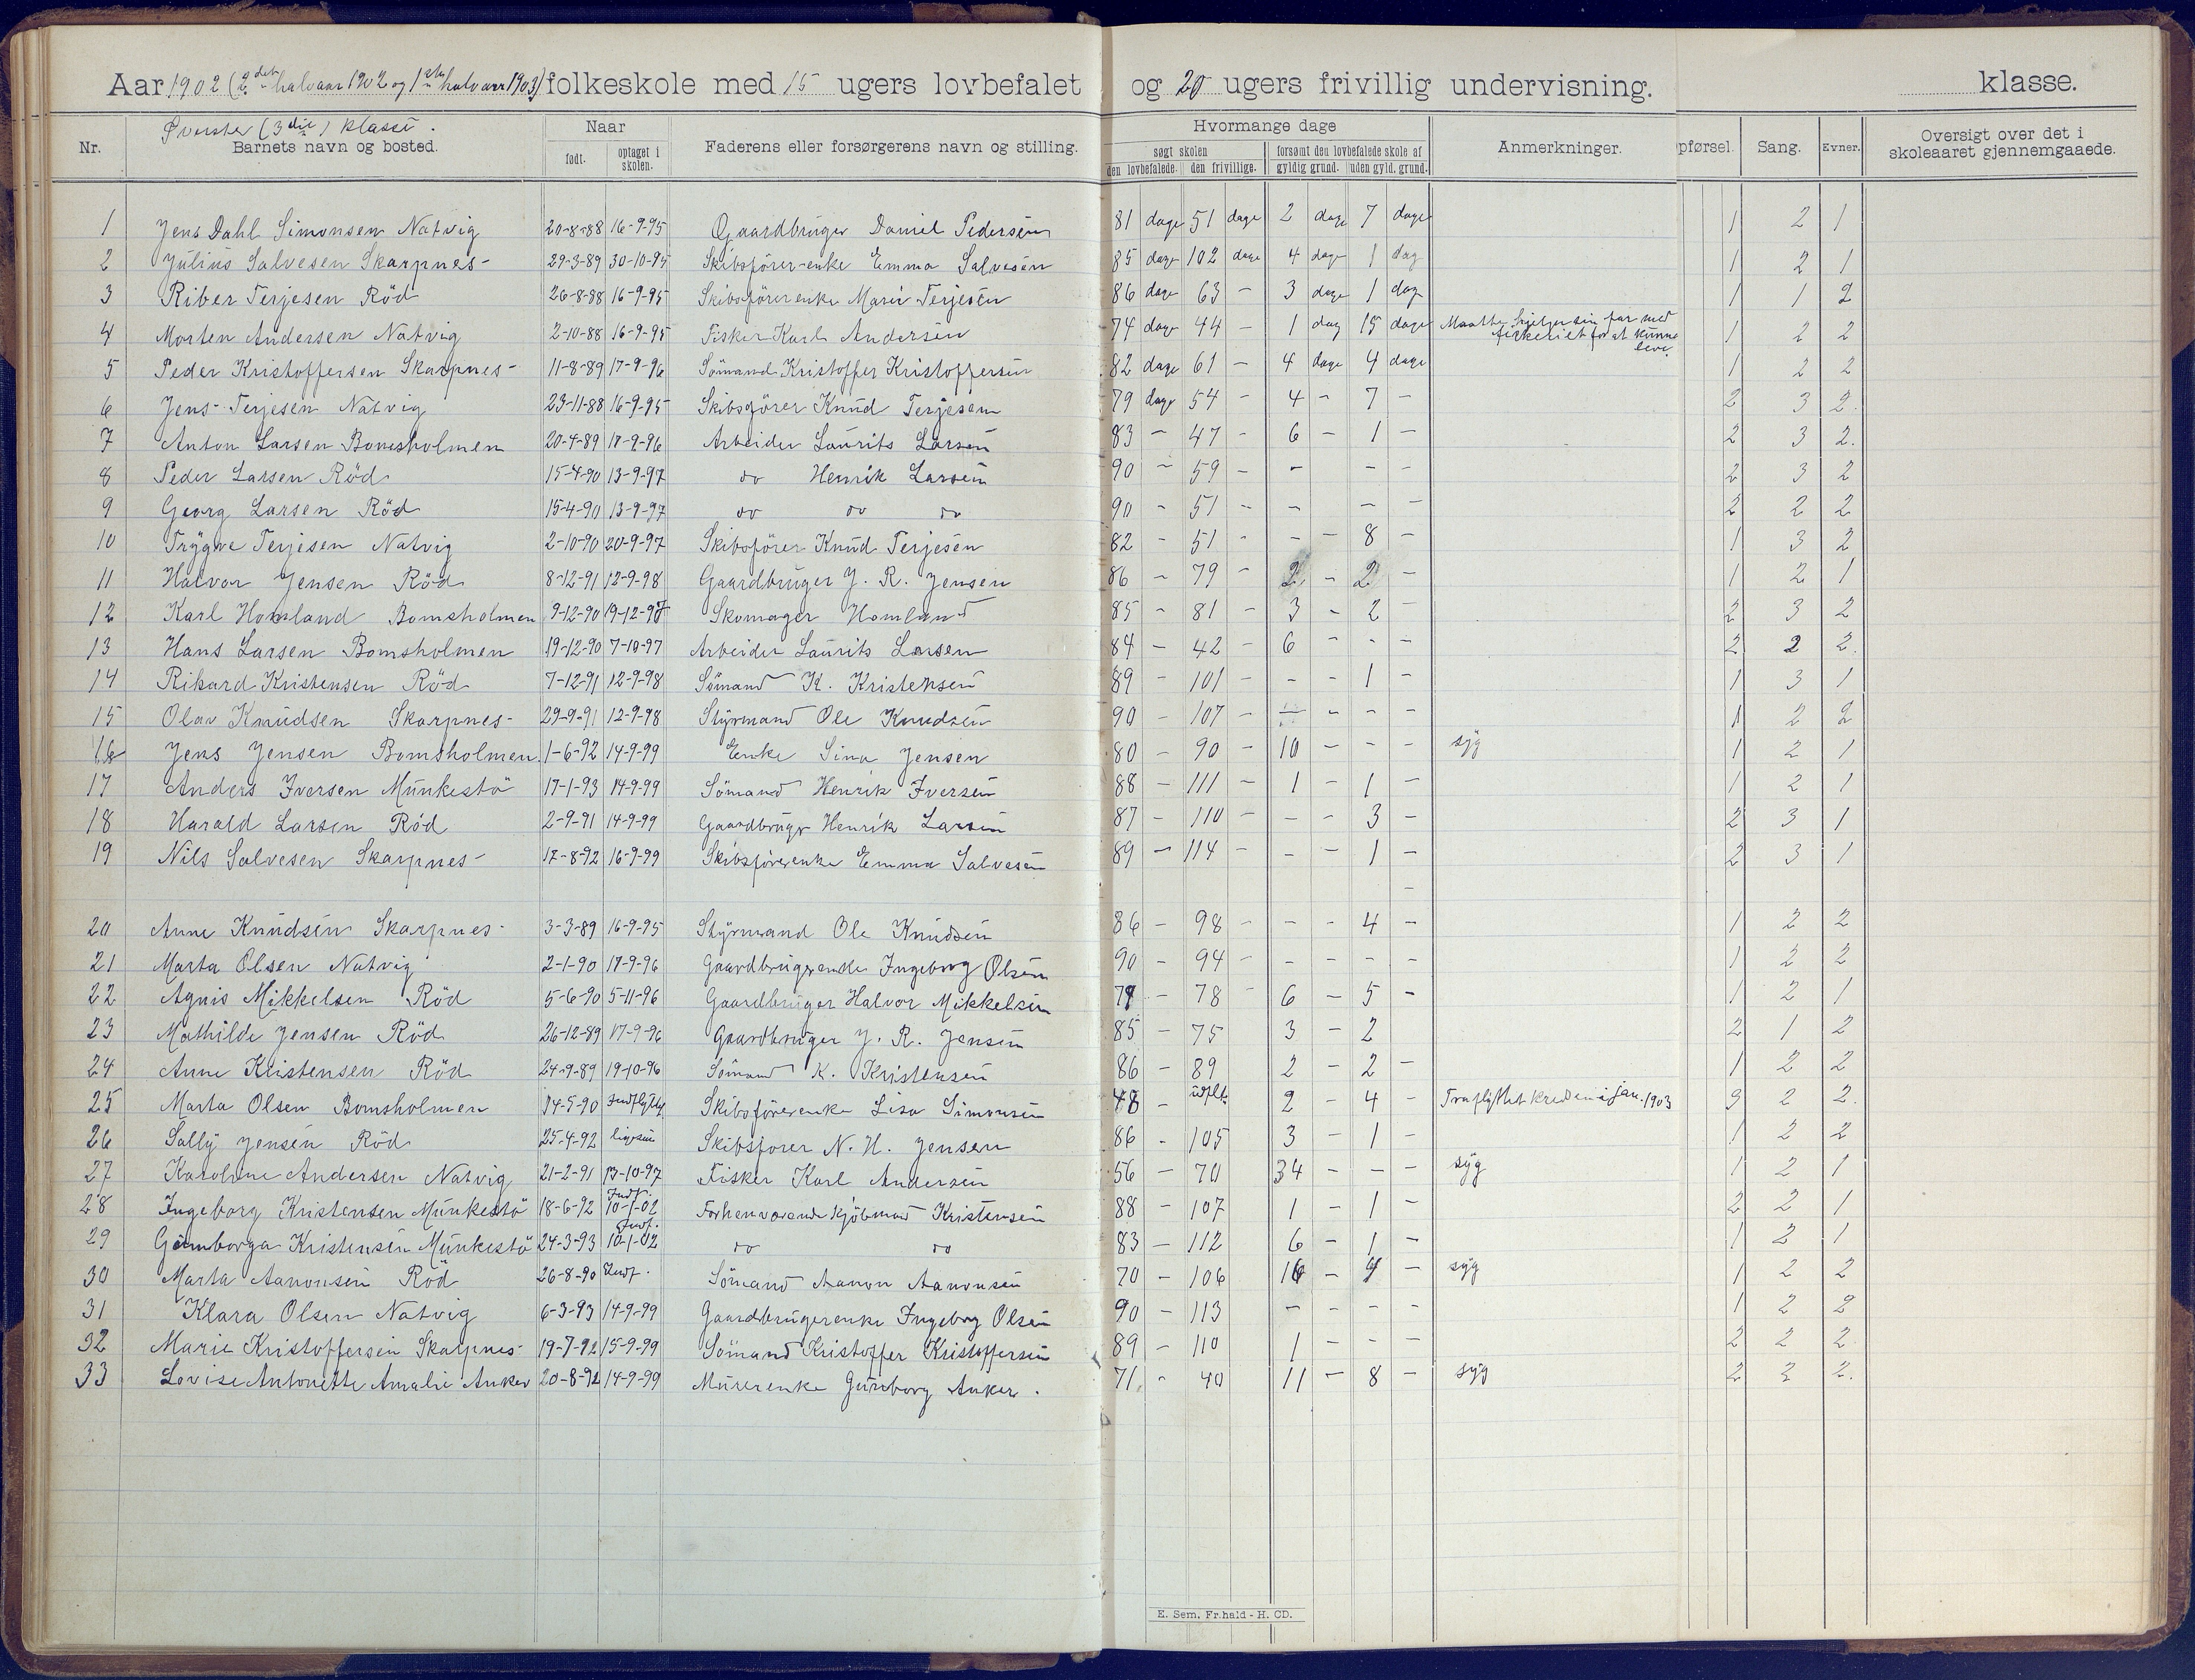 Aar 1902 (2det halvaar 1902 og 1ste halvaar 1903) folkeskole med 15 ugers lovbefalet og 20 ugers frivillig undervisning. klasse.
Øverste (3die) klasse.
Nr. Barnets navn og bosted. Naar født. optaget i skolen. Faderens eller forsørgerens navn og stilling. Hvormange dage søgt skolen den lovbefalede. den frivillige. forsømt den lovbefalede skole af gyldig grund. uden gyld. grund. Anmerkninger. pførsel. Sang. Evner. Oversigt over det i skoleaaret gjennemgaaede.
1 Jens Dahl Simonsen Natvig 20-8-88 16-9-95 Gaardbruger Daniel Pedersen 81 dage 51 dage 2 dage 7 dage 1 2 1
2 Julius Salvesen Skarpnes- 29-3-89 30-10-95 Skibsfører-enke Emma Salvesen 85 dage 102 dage 4 dage 1 dag 1 2 1
3 Riber Terjesen Röd 26-8-88 16-9-95 Skibsförerenke Maren Terjesen 86 dage 63 - 3 dage 1 dag 1 1 2
4 Morten Andersen Natvig 2-10-88 16-9-95 Fisker Karl Andersen 74 dage 44 - 1 dag 15 dage Maatte hjelpe sin far med fiskeriet for at kunne leve. 1 2 2
5 Peder Kristoffersen Skarpnes- 11-8-89 17-9-96 Sömand Kristoffer Kristoffersen 82 dage 61 - 4 dage 4 dage 1 2 2
6 Jens Terjesen Natvig 23-11-88 16-9-95 Skibsförer Knud Terjesen 79 dage 54 - 4 - 7 - 2 3 2.
7 Anton Larsen Bomsholmen 20-4-89 17-9-96 Arbeider Laurits Larsen 83 - 47 - 6 - 1 - 2 3 2.
8 Peder Larsen Röd 15-4-90 13-9-97 do Henrik Larsen 90 - 59 - - - - 2 3 2
9 Georg Larsen Röd 15-4-90 13-9-97 do do do 90 - 51 - - - - 2 2 2
10 Trygve Terjesen Natvig 2-10-90 20-9-97 Skibsförer Knud Terjesen 82 - 51 - - - 8 - 1 3 2
11 Halvor Jensen Röd 8-12-91 12-9-98 Gaardbruger J. R. Jensen 86 - 79 - 2 - 2 - 1 2 1
12 Karl Homland Bomsholmen 9-12-90 19-12-97 Skomager Homland 85 - 81 - 3 - 2 - 2 3 2
13 Hans Larsen Bomsholmen 19-12-90 7-10-97 Arbeider Laurits Larsen 84 - 42 - 6 - - - 2 2 2.
14 Rikard Kristensen Röd 7-12-91 12-9-98 Sömand K. Kristensen 89 - 101 - - - 1 - 1 3 1
15 Olav Knudsen Skarpnes- 29-9-91 12-9-98 Styrmand Ole Knudsen 90 - 107 - - - - - 1 2 2
16 Jens Jensen Bomsholmen. 1-6-92 14-9-99 Enke Sina Jensen 80 - 90 - 10 - - - syg 1 2 1
17 Anders Iversen Munkestö 17-1-93 14-9-99 Sömand Henrik Iversen 88 - 111 - 1 - 1 - 1 2 1
18 Harald Larsen Röd 2-9-91 14-9-99 Gaardbruger Henrik Larsen 87 - 110 - - - 3 - 2 3 1
19 Nils Salvesen Skarpnes- 17-8-92 16-9-99 Skibsförerenke Emma Salvesen 89 - 114 - - - 1 - 2 3 1
-
20 Anne Knudsen Skarpnes- 3-3-89 16-9-95 Styrmand Ole Knudsen 86 - 98 - - - 4 - 1 2 2
21 Marta Olsen Natvig 2-1-90 17-9-96 Gaardbrugerenke Ingeborg Olsen 90 - 94 - - - - - 1 2 2
22 Agnis Mikkelsen Röd 5-6-90 5-11-96 Gaardbruger Halvor Mikkelsen 79 - 78 - 6 - 5 - 1 2 1
23 Mathilde Jensen Röd 26-12-89 17-9-96 Gaardbruger J. R. Jensen 85 - 75 3 - 2 2 1 2
24 Anne Kristensen Röd 24-9-89 19-10-96 Sömand K. Kristensen 86 - 89 2 - 2 - 1 2 2
25 Marta Olsen Bomsholmen 14-5-90 Indflyttet Skibsförerenke Lisa Simonsen 48 - udflt. 2 - 4 - Fraflyttet kredsen i jan. 1903 3 2 2.
26 Sally Jensen Röd 25-4-92 ligesaa Skibsforer N. H. Jensen 86 - 105 3 - 1 - 1 2 2
27 Karoline Andersen Natvig 21-2-91 13-10-97 Fisker Karl Andersen 56 - 70 34 - - - syg 1 2 1
28 Ingeborg Kristensen Munkestö 18-6-92 Indf. 10-1-02 Forhenværende kjöbmand Kristensen 88 - 107 1 - 1 - 2 2 1
29 Gunborga Kristensen Munkestö 24-3-93 Indf. 10-1-02 do do 83 - 112 6 - 1 - 1 2 1
30 Marta Aanonsen Röd 26-8-90 Indf. Sömand Aanon Aanonsen 70 - 106 16 - 4 - syg 1 2 2
31 Klara Olsen Natvig 6-3-93 14-9-99 Gaardbrugerenke Ingeborg Olsen 90 - 113 - - - - 1 2 2
32 Marie Kristoffersen Skarpnes- 19-7-92 15-9-99 Sömand Kristoffer Kristoffersen 89 - 110 1 - - - 2 2 2
33 Lovise Antonette Amalie Anker 20-8-92 14-9-99 Murerenke Gunborg Anker. 71 - 40 11 - 8 - syg 2 2 2.
E. Sem, Fr.hald - H. CD.